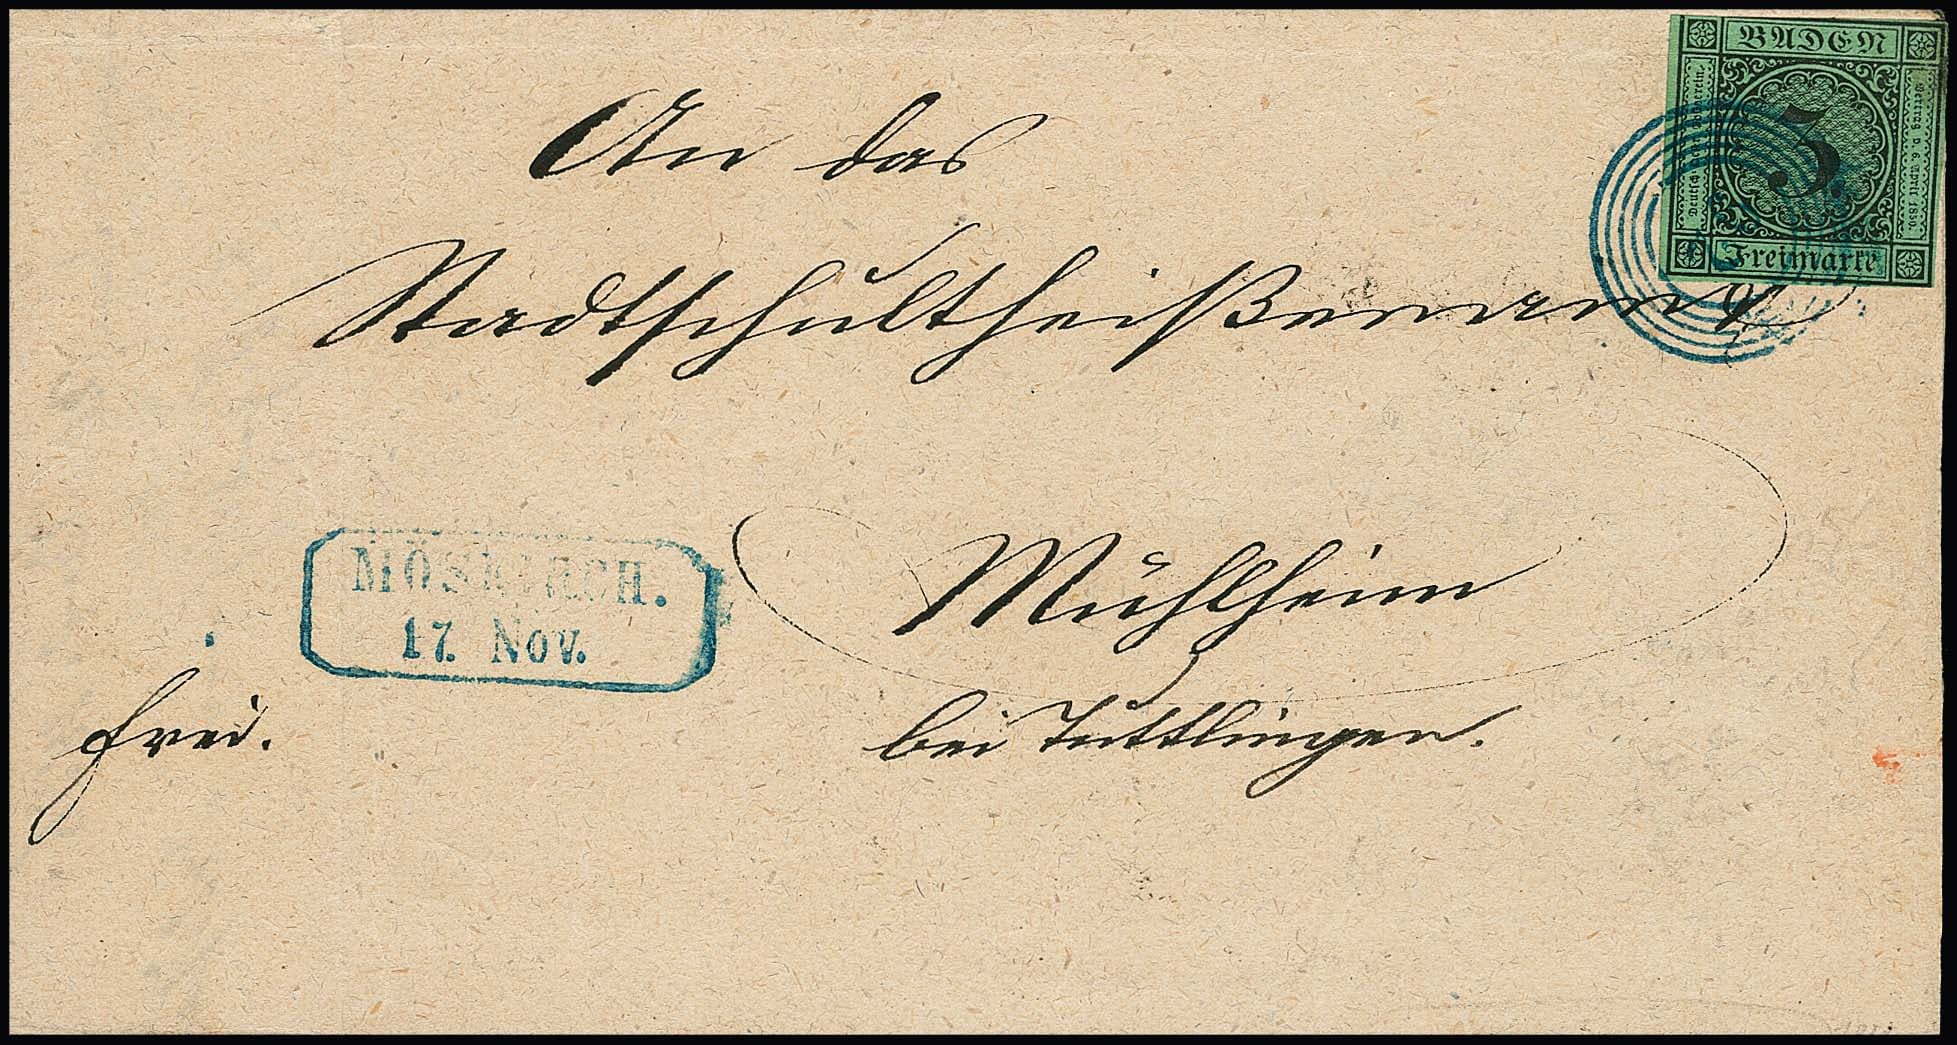 BADEN
Deutsch. Oestr. Postverein.
3
Vertrag v. 6. April 1850.
Freimarke
An das
Stadtschultheißenamt
MÖSKIRCH.
17. Nov.
Mühlheim
frei.
bei Tuttlingen.